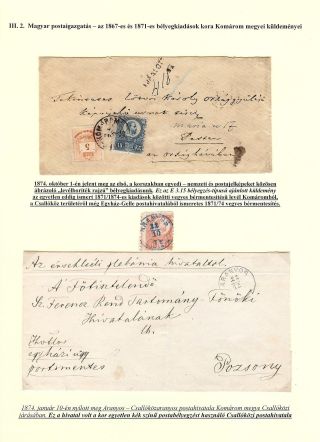 III. 2. Magyar postaigazgatás – az 1867-es és 1871-es bélyegkiadások kora Komárom megyei küldeményei
Ajánlott
Tekintetes
Károly
képviselő
Pesten
az országházban
5
1874. október 1-én jelent meg az első, a korszakban egyedi – nemzeti és postajelképeket közösen
ábrázoló „levélboríték rajzú” bélyegkiadásunk. Ez az E 3.15 bélyegzés-típusú ajánlott küldemény
az egyetlen eddig ismert 1871/1874-es kiadások közötti vegyes bérmentesítésű levél Komáromból, a
Csallóköz területéről még Egyház-Gelle postahivatalából ismeretes 1871/74 vegyes bérmentesítés.
ARANYOS
Az érsekleéli plébánia hivataltól.
A Főtisztelendő
Sz. Ferencz Rend Tartomány Főnöki
Hivatalának
Pozsony
egyházi ügy
portomentes
1874. január 10-én nyílott meg Aranyos – Csallóközaranyos postahivatala Komárom megye Csallóközi
járásában. Ez a hivatal volt a kor egyetlen kék színű postabélyegzőt használó Csallóközi postahivatala